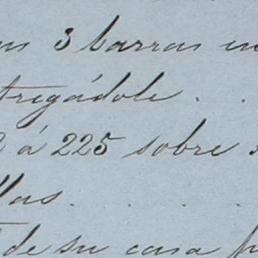 3 barras en
tregádole . .
á 225 sobre
llas . . .
de su casa